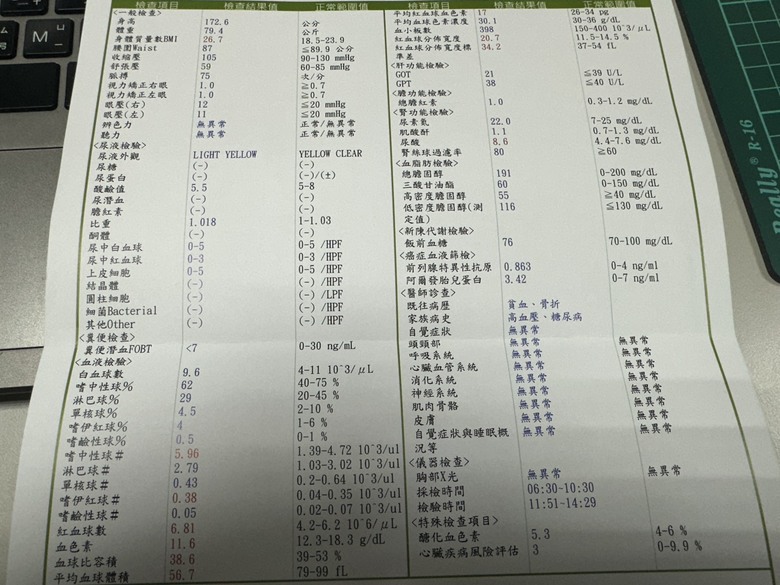 檢查項目 檢查結果值 正常範圍值
<一般檢查>
身高 172.6 公分
體重 79.4 公斤
身體質量數BMI 26.7 18.5-23.9
腰圍Waist 87 ≦89.9 公分
收縮壓 105 90-130 mmHg
舒張壓 59 60-85 mmHg
脈搏 75 次/分
視力矯正右眼 1.0 ≧0.7
視力矯正左眼 1.0 ≧0.7
眼壓(右) 12 ≦20 mmHg
眼壓(左) 11 ≦20 mmHg
辨色力 無異常 正常/無異常
聽力 無異常 正常/無異常
<尿液檢驗>
尿液外觀 LIGHT YELLOW YELLOW CLEAR
尿糖 (-) (-)
尿蛋白 (-) (-)/(±)
酸鹼值 5.5 5-8
尿潛血 (-) (-)
膽紅素 (-) (-)
比重 1.018 1-1.03
酮體 (-) (-)
尿中白血球 0-5 0-5 /HPF
尿中紅血球 0-3 0-3 /HPF
上皮細胞 0-5 0-5 /HPF
結晶體 (-) (-) /HPF
圓柱細胞 (-) (-) /LPF
細菌Bacterial (-) (-) /HPF
其他Other (-) (-) /HPF
<糞便檢查>
糞便潛血FOBT <7 0-30 ng/mL
<血液檢驗>
白血球數 9.6 4-11 10^3/μL
嗜中性球% 62 40-75 %
淋巴球% 29 20-45 %
單核球% 4.5 2-10 %
嗜伊紅球% 4 1-6 %
嗜鹼性球% 0.5 0-1 %
嗜中性球# 5.96 1.39-4.72 10^3/ul
淋巴球# 2.79 1.03-3.02 10^3/ul
單核球# 0.43 0.2-0.64 10^3/uL
嗜伊紅球# 0.38 0.04-0.35 10^3/uL
嗜鹼性球# 0.05 0.02-0.07 10^3/uL
紅血球數 6.81 4.2-6.2 10^6/μL
血色素 11.6 12.3-18.3 g/dL
血球比容積 38.6 39-53 %
平均血球體積 56.7 79-99 fL
檢查項目 檢查結果值 正常範圍值
平均紅血球血色素 17 26-34 pg
平均血球血色素濃度 30.1 30-36 g/dL
血小板數 398 150-400 10^3/μL
紅血球分佈寬度 20.7 11.5-14.5 %
紅血球分佈寬度標 34.2 37-54 fL
準差
<肝功能檢驗>
GOT 21 ≦39 U/L
GPT 38 ≦40 U/L
<膽功能檢驗>
總膽紅素 1.0 0.3-1.2 mg/dL
<腎功能檢驗>
尿素氮 22.0 7-25 mg/dL
肌酸酐 1.1 0.7-1.3 mg/dL
尿酸 8.6 4.4-7.6 mg/dL
腎絲球過濾率 80 ≧60
<血脂肪檢驗>
總膽固醇 191 0-200 mg/dL
三酸甘油酯 60 0-150 mg/dL
高密度膽固醇 55 ≧40 mg/dL
低密度膽固醇(測 116 ≦130 mg/dL
定值)
<新陳代謝檢驗>
飯前血糖 76 70-100 mg/dL
<癌症血液篩檢>
前列腺特異性抗原 0.863 0-4 ng/ml
阿爾發胎兒蛋白 3.42 0-7 ng/ml
<醫師診查>
既往病歷 貧血、骨折
家族病史 高血壓、糖尿病
自覺症狀 無異常
頭頸部 無異常 無異常
呼吸系統 無異常 無異常
心臟血管系統 無異常 無異常
消化系統 無異常 無異常
神經系統 無異常 無異常
肌肉骨骼 無異常 無異常
皮膚 無異常 無異常
自覺症狀與睡眠概 無異常 無異常
況等
<儀器檢查>
胸部X光 無異常 無異常
採檢時間 06:30~10:30
檢驗時間 11:51~14:29
<特殊檢查項目>
醣化血色素 5.3 4-6 %
心臟疾病風險評估 3 0-9.9 %
M
R-16